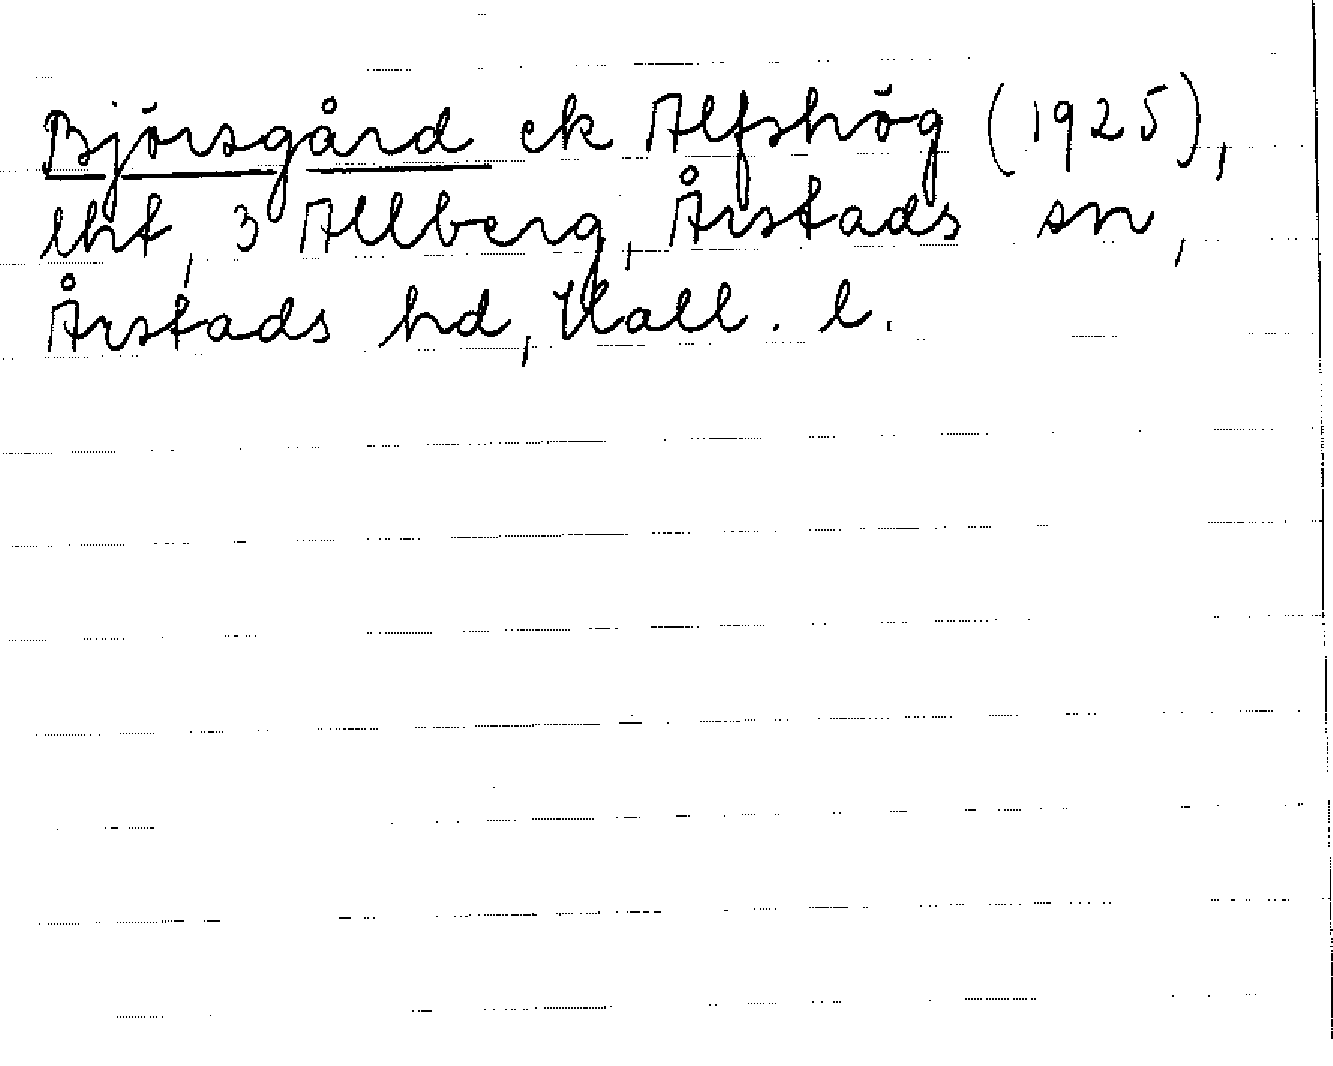 Björsgård ek Alfshög (1925),
lht, 3 Allberg, Årstads sn,
Årstads hd, Hall. l.